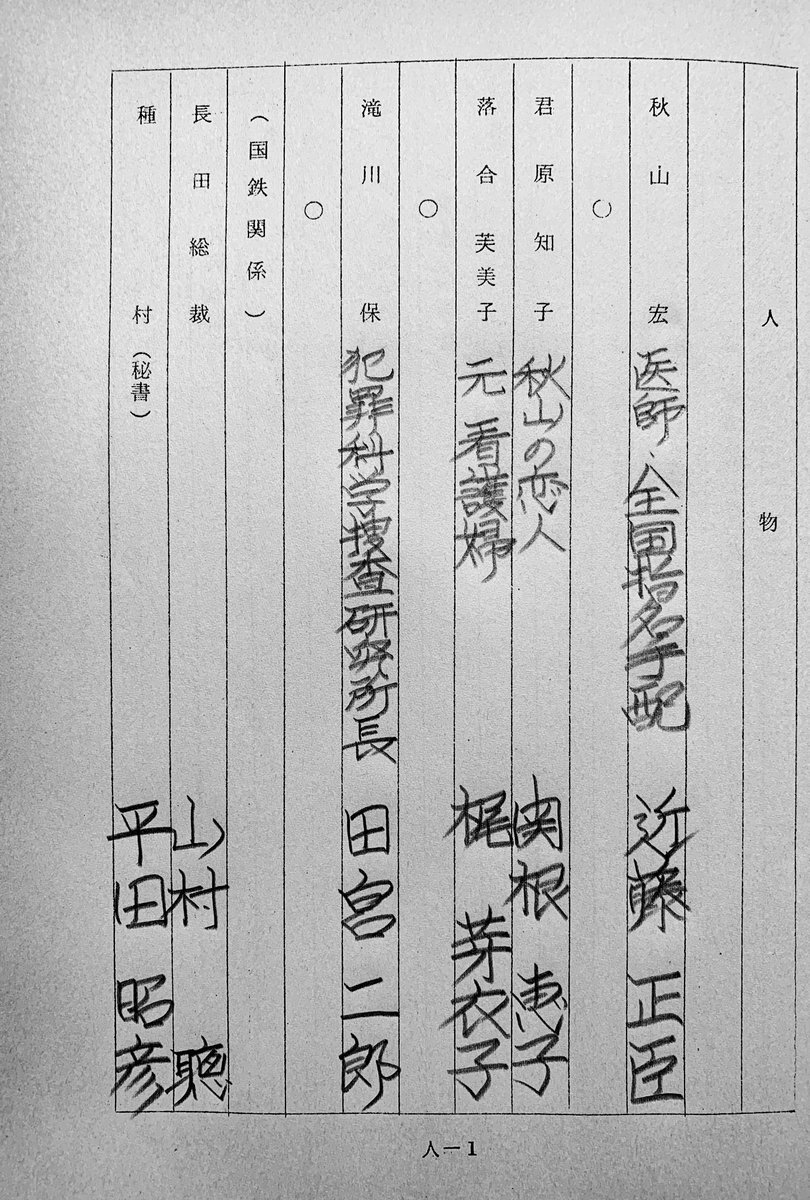 人物
秋山 宏 医師、全国指名手配 近藤 正臣
○
君原知子 秋山の恋人 関根 恵子
落合芙美子 元 看護婦 梶 芽衣子
○
滝川 保 犯罪科学捜査研究所長 田宮 二郎
○
(国鉄関係)
長田総裁 山村 聰
種村(秘書) 平田 昭彦
人－1